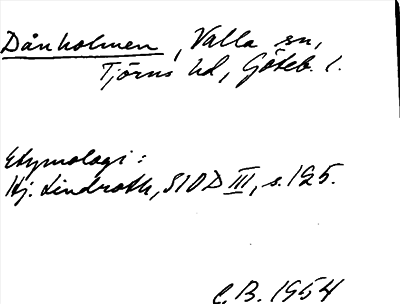 Dånholmen, Valla sn,
Tjörns hd, Göteb. l.
Etymologi:
Hj. Lindroth, SIOD III, s. 125.
C.B. 1954